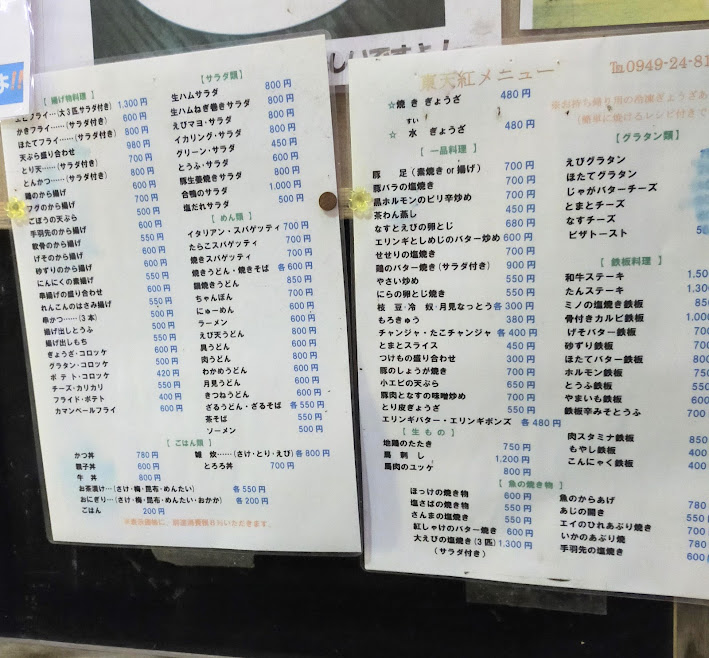 よ!!
しいですよ
【 揚げ物料理 】
えびフライ…(大3匹サラダ付き) 1,300円
かきフライ…(サラダ付き) 800円
ほたてフライ…(サラダ付き) 980円
天ぷら盛り合わせ 700円
とり天……(サラダ付き) 800円
とんかつ…(サラダ付き) 800円
鶏のから揚げ 700円
フグのから揚げ
ごぼうの天ぷら
手羽先のから揚げ 600円
軟骨のから揚げ 550円
げそのから揚げ 600円
砂ずりのから揚げ 550円
にんにくの素揚げ 550円
串揚げの盛り合わせ 600円
れんこんのはさみ揚げ 550円
串かつ……(3本) 500円
揚げ出しとうふ 550円
揚げ出しもち 550円
ぎょうざ・コロッケ 600円
グラタン・コロッケ 500円
ポテト・コロッケ 420円
チーズ・カリカリ 550円
フライド・ポテト 400円
カマンベールフライ 600円
【サラダ類】
生ハムサラダ 800円
生ハムねぎ巻きサラダ 800円
えびマヨ・サラダ 800円
イカリング・サラダ 800円
グリーン・サラダ 450円
とうふ・サラダ 600円
豚生姜焼きサラダ 800円
合鴨のサラダ 1,000円
塩だれサラダ 500円
【 めん類 】
イタリアン・スパゲッティ 700円
たらこスパゲッティ 700円
焼きスパゲッティ 700円
焼きうどん・焼きそば 各600円
鍋焼きうどん 850円
ちゃんぽん 700円
にゅーめん 600円
ラーメン 600円
えび天うどん 800円
具うどん 600円
肉うどん 800円
わかめうどん 600円
月見うどん 600円
きつねうどん 600円
ざるうどん・ざるそば 各550円
茶そば 550円
ソーメン 500円
【ごはん類】
かつ丼 780円
親子丼 600円
牛丼 800円
雑炊……(さけ・とり・えび) 各800円
とろろ丼 700円
お茶漬け…(さけ・梅・昆布・めんたい) 各550円
おにぎり…(さけ・梅・昆布・めんたい・おかか) 各200円
ごはん 200円
東天紅メニュー
℡0949-24-81
☆焼きぎょうざ 480円
すい
☆水ぎょうざ 480円
【 一品料理 】
豚足(素焼き or 揚げ) 700円
豚バラの塩焼き 700円
黒ホルモンのピリ辛炒め 700円
茶わん蒸し 450円
なすとえびの卵とじ 680円
エリンギとしめじのバター炒め 600円
せせりの塩焼き 700円
鶏のバター焼き(サラダ付き) 900円
やさい炒め 550円
にらの卵とじ焼き 550円
枝豆・冷奴・月見なっとう 各300円
もろきゅう 380円
チャンジャ・たこチャンジャ 各400円
とまとスライス 450円
つけもの盛り合わせ 300円
豚のしょうが焼き 700円
小エビの天ぷら 650円
豚肉となすの味噌炒め 700円
とり皮ぎょうざ 550円
エリンギバター・エリンギポンズ 各480円
【 生もの 】
地鶏のたたき 750円
馬刺し 1,200円
馬肉のユッケ 800円
※お持ち帰り用の冷凍ぎょうざあ
(簡単に焼けるレシピ付きで
【グラタン類】
えびグラタン
ほたてグラタン
じゃがバターチーズ
とまとチーズ
なすチーズ
ピザトースト
【 鉄板料理 】
和牛ステーキ 1,50
たんステーキ 1,300
ミノの塩焼き鉄板 850
骨付きカルビ鉄板 1,000
げそバター鉄板 700
砂ずり鉄板 700
ほたてバター鉄板 800
ホルモン鉄板 750
とうふ鉄板 550
やまいも鉄板 600
鉄板辛みそとうふ 700
肉スタミナ鉄板 850
もやし鉄板 400
こんにゃく鉄板 400
【 魚の焼き物 】
ほっけの焼き物 600円
塩さばの焼き物 550円
さんまの塩焼き 550円
紅しゃけのバター焼き 600円
大えびの塩焼き(3匹) 1,300円
(サラダ付き)
魚のからあげ 780
あじの開き 550
エイのひれあぶり焼き 700
いかのあぶり焼 780
手羽先の塩焼き 600